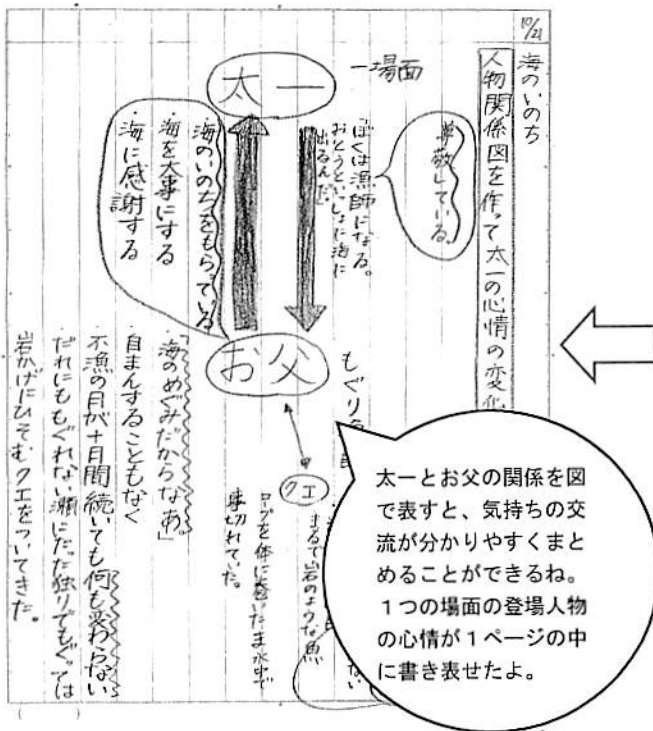 10/21
海のいのち
人物関係図を作って太一の心情の変化
一場面
尊敬している。
ぼくは漁師になる。
おとうといっしょに海に
出るんだ。
太一
海のいのちをもらっている
海を大事にする
・海に感謝する
もぐり
ない
お父
クエ
まるで岩のような魚
ロープを体に巻いたまま水中で
事切れていた。
「海のめぐみだからなあ。」
自まんすることもなく
不漁の日が十日間続いても何も変わらない
だれにももぐれない瀬にたった独りでもぐっては
岩かげにひそむクエをついてきた。
太一とお父の関係を図
で表すと、気持ちの交
流が分かりやすくまと
めることができるね。
1つの場面の登場人物
の心情が1ページの中
に書き表せたよ。